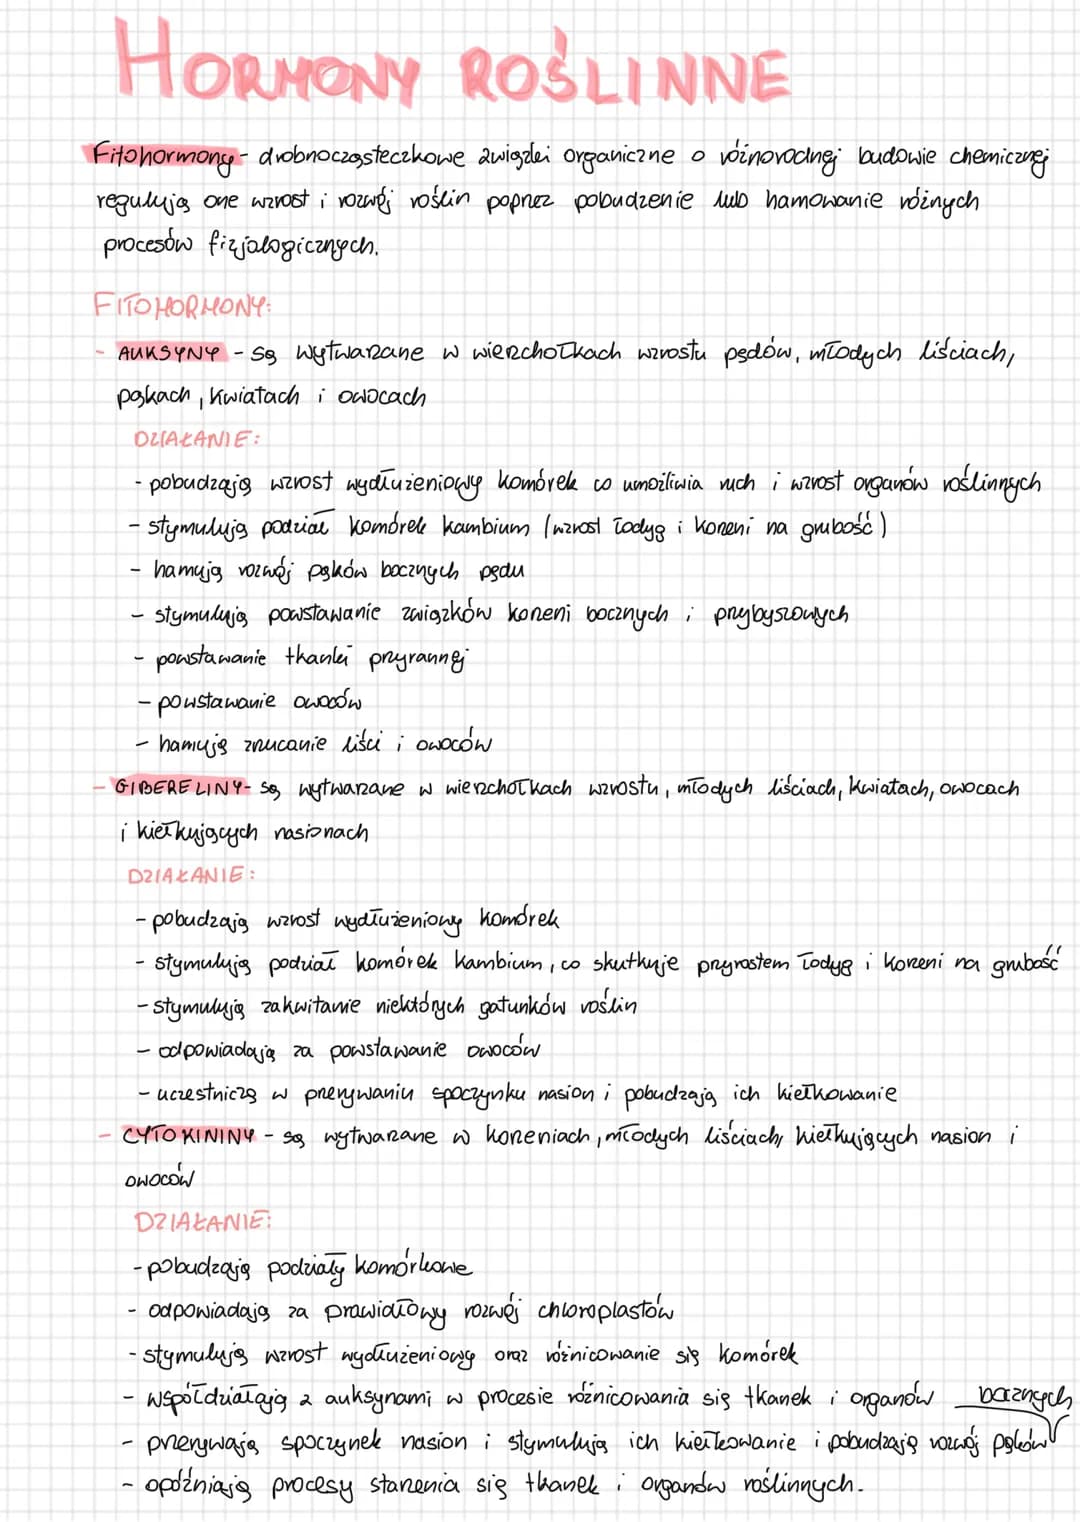 HORMONY ROŚLINNE
Fitohormony - drobnocząsteczkowe związki organiczne o różnorodnej budowie chemicznej
regulują one wzrost i rozwój roślin poprzez pobudzenie lub hamowanie różnych
procesów fizjologicznych.
FITOHORMONY:
- AUKSYNY - są wytwarzane w wierzchołkach wzrostu pędów, młodych liściach,
pąkach, kwiatach i owocach
DZIAŁANIE:
- pobudzają wzrost wydłużeniowy komórek co umożliwia ruch i wzrost organów roślinnych
- stymulują podział komórek kambium (wzrost łodyg i korzeni na grubość)
- hamują rozwój pąków bocznych pędu
- stymulują powstawanie związków korzeni bocznych i przybyszowych
- powstawanie tkanki przyrannej
- powstawanie owoców
- hamują zrzucanie liści i owoców
- GIBERELINY - są wytwarzane w wierzchołkach wzrostu, młodych liściach, kwiatach, owocach
i kiełkujących nasionach
DZIAŁANIE:
- pobudzają wzrost wydłużeniowy komórek
- stymulują podział komórek kambium, co skutkuje przyrostem łodyg i korzeni na grubość
- stymulują zakwitanie niektórych gatunków roślin
- odpowiadają za powstawanie owoców
- uczestniczą w przerywaniu spoczynku nasion i pobudzają ich kiełkowanie
- CYTOKININY - są wytwarzane w korzeniach, młodych liściach, kiełkujących nasion i
owoców
DZIAŁANIE:
- pobudzają podziały komórkowe
- odpowiadają za prawidłowy rozwój chloroplastów
- stymulują wzrost wydłużeniowy oraz różnicowanie się komórek
- współdziałają z auksynami w procesie różnicowania się tkanek i organów bocznych
- przerywają spoczynek nasion i stymulują ich kiełkowanie i pobudzają rozwój pąków
- opóźniają procesy starzenia się tkanek i organów roślinnych.